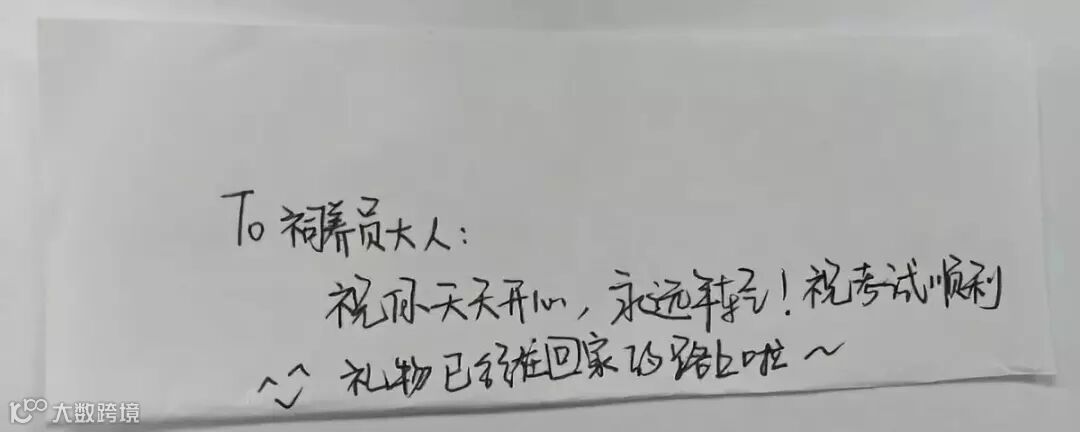 To 饲养员大人:
祝你天天开心,永远年轻!祝考试顺利
^_^ 礼物已经在回家的路上啦~
大数跨境